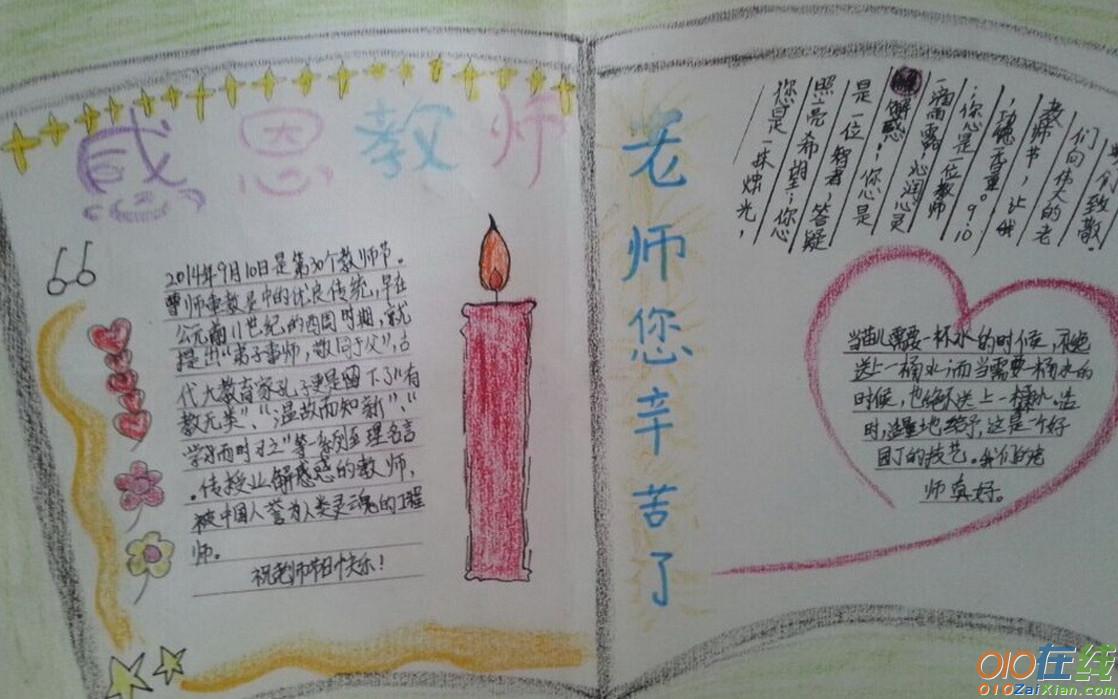 感恩教师
2014年9月10日是第30个教师节。
师重教是中的优良传统,早在
公元前11世纪的西周时期,就
提出"弟子事师,敬同于父",古
代大教育家孔子更是留下了"有
教无类"、"温故而知新"、"
学而时习之"等一系列至理名言
。传授业解惑惑的教师,
被中国人誉为人类灵魂的工程
师。
祝老师节日快乐!
老师您辛苦了
您是一株烛光,
照亮希望;您
是一位智者,答疑
解惑;您是
一滴雨露,沁润心灵
;您是一位教师
,功德千重。9.10
教师节,让我
们向伟大的老
致敬
当苗儿需要一杯水的时候,不
送上一桶水;而当需要一桶水的
时候,也绝不送上一杯水。适
时,适量地给予,这是一个好
园丁的技艺。我们的老
师真好。
010在线
010ZaiXian.com